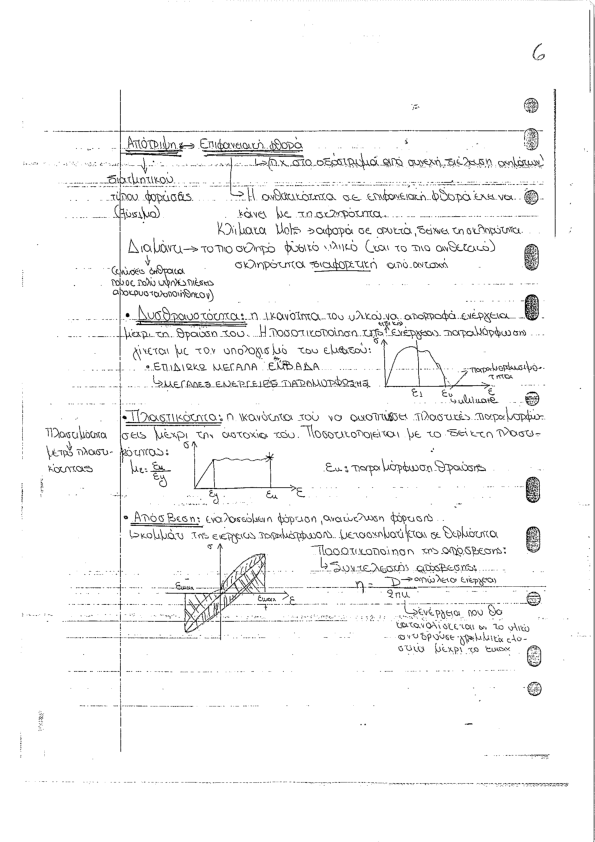 6
Απότριψη ↔ Επιφανειακή φθορά
↳ π.χ. στο οδόστρωμα από συνεχή διέλευση οχημάτων
διατμητικού
τύπου φόρτισης
(ξύσιμο)
↳ Η ανθεκτικότητα σε επιφανειακή φθορά έχει να
κάνει με τη σκληρότητα.
Κλίματα Mohs → αφορά σε ορυκτά, δείχνει τη σκληρότητα
Διαμάντι → το πιο σκληρό φυσικό υλικό (και το πιο ανθεκτικό)
σκληρότητα διαφορετική από αντοχή
(ενώσεις άνθρακα
που σε πολύ υψηλές πιέσεις
αποκρυσταλλοποιήθηκαν)
• Δυσθραυστότητα: η ικανότητα του υλικού να απορροφά ενέργεια
μέχρι τη θραύση του. Η ποσοτικοποίηση της ενέργειας παραμόρφωσης
γίνεται με τον υπολογισμό του εμβαδού:
• ΕΠΙΔΙΩΚΩ ΜΕΓΑΛΑ ΕΜΒΑΔΑ
↳ ΜΕΓΑΛΕΣ ΕΝΕΡΓΕΙΕΣ ΠΑΡΑΜΟΡΦΩΣΗΣ
σ
παραμορφωσιμότητα
ε1 εu ε
ultimate
• Πλαστικότητα: η ικανότητα του να αναπτύσσει πλαστικές παραμορφώ-
σεις μέχρι την αστοχία του. Ποσοτικοποιείται με το δείκτη πλαστι-
κότητας:
Πλαστιμότητα
μέτρο πλαστι-
κότητας
με = εu/εy
σ
εy εu ε
εu: παραμόρφωση θραύσης
• Απόσβεση: εναλλασσόμενη φόρτιση, ανακύκλωση φόρτισης
↳ κομμάτι της ενέργειας παραμόρφωσης μετασχηματίζεται σε θερμότητα
σ
εmax
εmax
ε
Ποσοτικοποίηση της απόσβεσης:
↳ Συντελεστής απόσβεσης
η = D/2πu
→ απώλεια ενέργειας
↳ ενέργεια που θα
καταναλίσκεται αν το υλικό
συμπεριφερόταν γραμμικά ελα-
στικά μέχρι το εmax